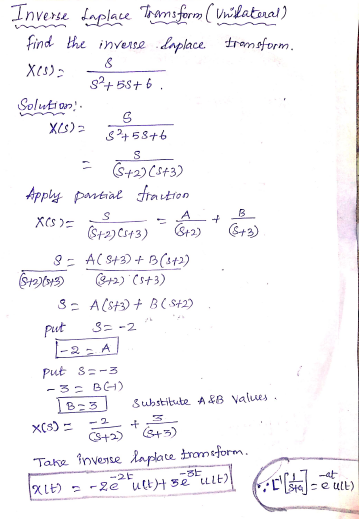 Inverse Laplace Transform (Unilateral)
Find the inverse Laplace transform.
X(s) = s / (s²+5s+6).
Solution:-
X(s) = s / (s²+5s+6)
= s / ((s+2)(s+3))
Apply partial fraction
X(s) = s / ((s+2)(s+3)) = A / (s+2) + B / (s+3)
s / ((s+2)(s+3)) = (A(s+3) + B(s+2)) / ((s+2)(s+3))
s = A(s+3) + B(s+2)
put s = -2
-2 = A
put s = -3
-3 = B(-1)
B = 3 Substitute A & B values.
X(s) = -2 / (s+2) + 3 / (s+3)
Take inverse Laplace transform.
x(t) = -2e^{-2t} u(t) + 3e^{-3t} u(t) (∵ L⁻¹[1/(s+a)] = e^{-at} u(t))